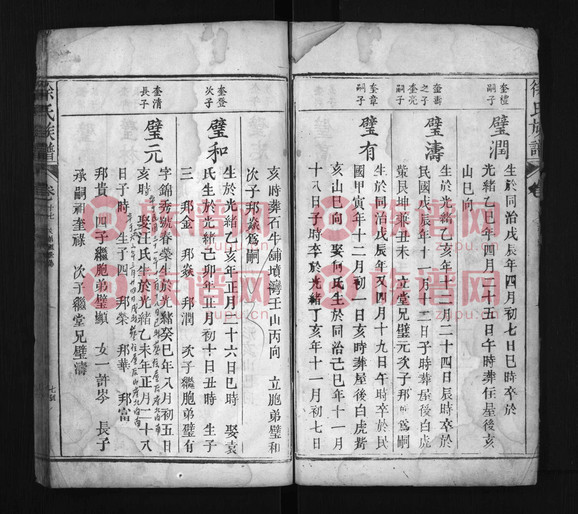 徐氏族譜
卷
奎禮
嗣子
璧潤
生於同治戊辰年四月初七日巳時卒於
光緒乙巳年四月二十五日午時葬任屋後亥
山巳向
奎
之子
奎亮
嗣子
璧濤
生於光緒乙亥年十二月二十四日辰時卒於
民國戊辰年十一月十三日子時葬屋後白虎
嘴艮坤兼丑未 立堂兄璧元次子邦 爲嗣
奎章
嗣子
璧有
生於同治戊辰年又四月十九日午時卒於民
國甲寅年十二月初一日亥時葬屋後白虎嘴
亥山巳向 娶何氏生於同治己巳年十一月
十八日子時卒於光緒丁亥年十一月初七日
亥時葬石牛鋪墳灣壬山丙向 立胞弟璧和
次子邦焱爲嗣
奎登
次子
璧和
生於光緒乙亥年正月二十六日巳時 娶袁
氏生於光緒己卯年 月初十日丑時 生子
三 邦金 邦焱 邦潤 次子繼胞弟璧有
奎清
長子
璧元
字錦秀號春榮生於光緒癸巳年八月初五日
亥時 娶汪氏生於光緒乙未年正月二十八
日子時 生子四 邦榮 邦華 邦富
邦貴 四子繼胞弟璧顯 女一許岑 長子
承嗣祖奎祿 次子繼堂兄璧濤
徐氏族譜
卷十七
族谱网
族谱网